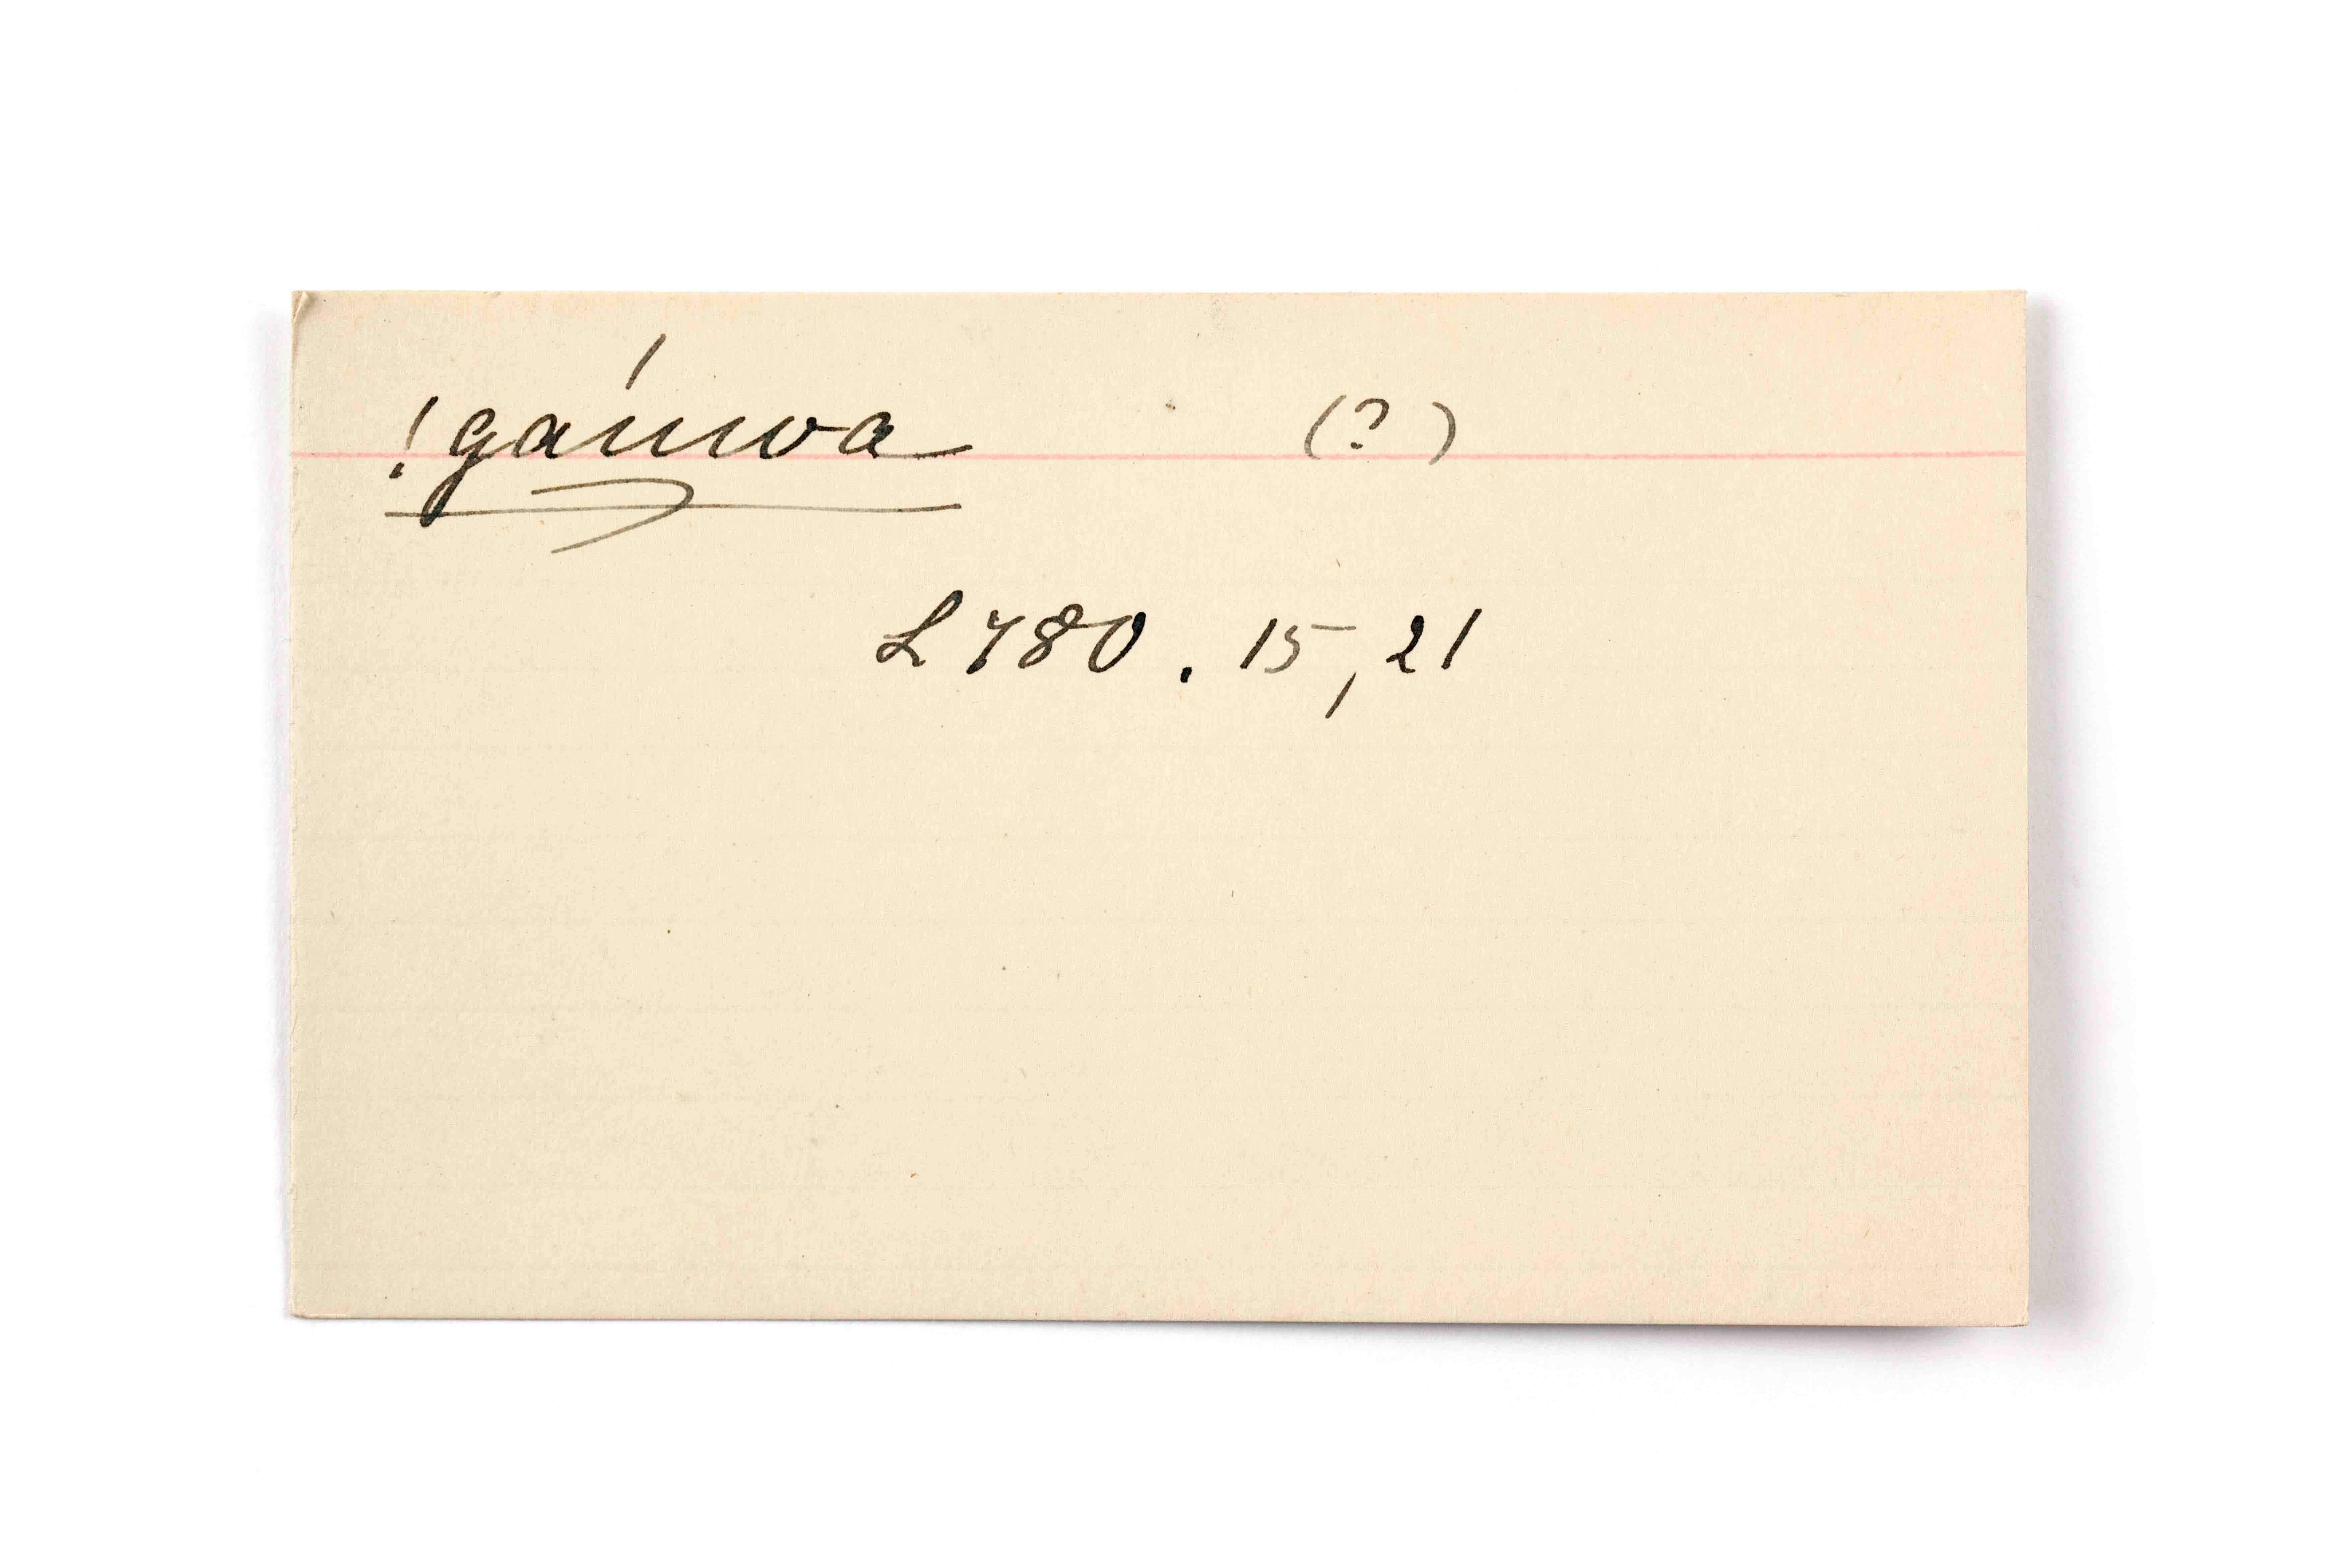 !gaúwa (?)
L 780. 15, 21